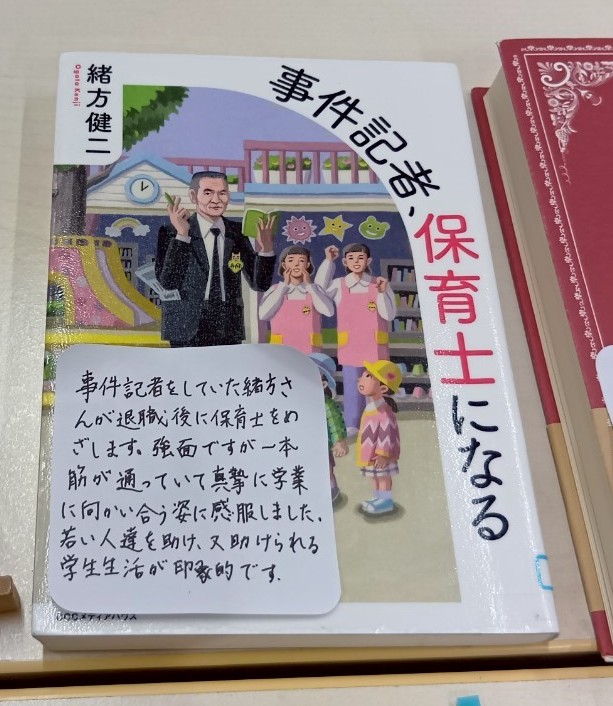 緒方健二
Ogata Kenji
事件記者、保育士になる
事件記者をしていた緒方さ
んが退職後に保育士をめ
ざします。強面ですが一本
筋が通っていて真摯に学業
に向かい合う姿に感服しました。
若い人達を助け、又助けられる
学生生活が印象的です。
CCCメディアハウス